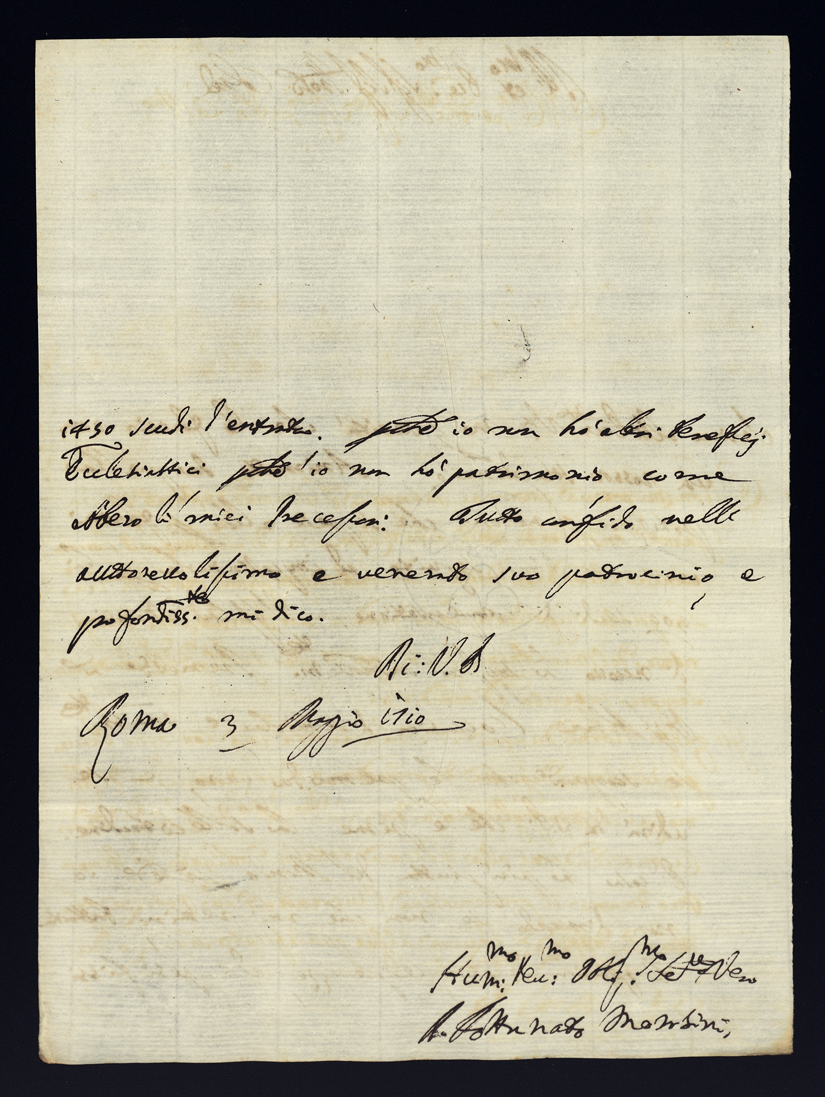 1450 scudi d'entrata. perche io non hò altri Benefitij
Ecclesiastici perche io non hò patrimonio come
ebbero li miei Precessori: Tutto confido nell'
auttorevolissimo e venerato suo patrocinio, e
profondiss.te mi dico.
Di: V. S
Roma 3 Maggio 1710
Hum:mo Deu:mo Obl:mo Ser.re Vero
Fortunato Mansini,